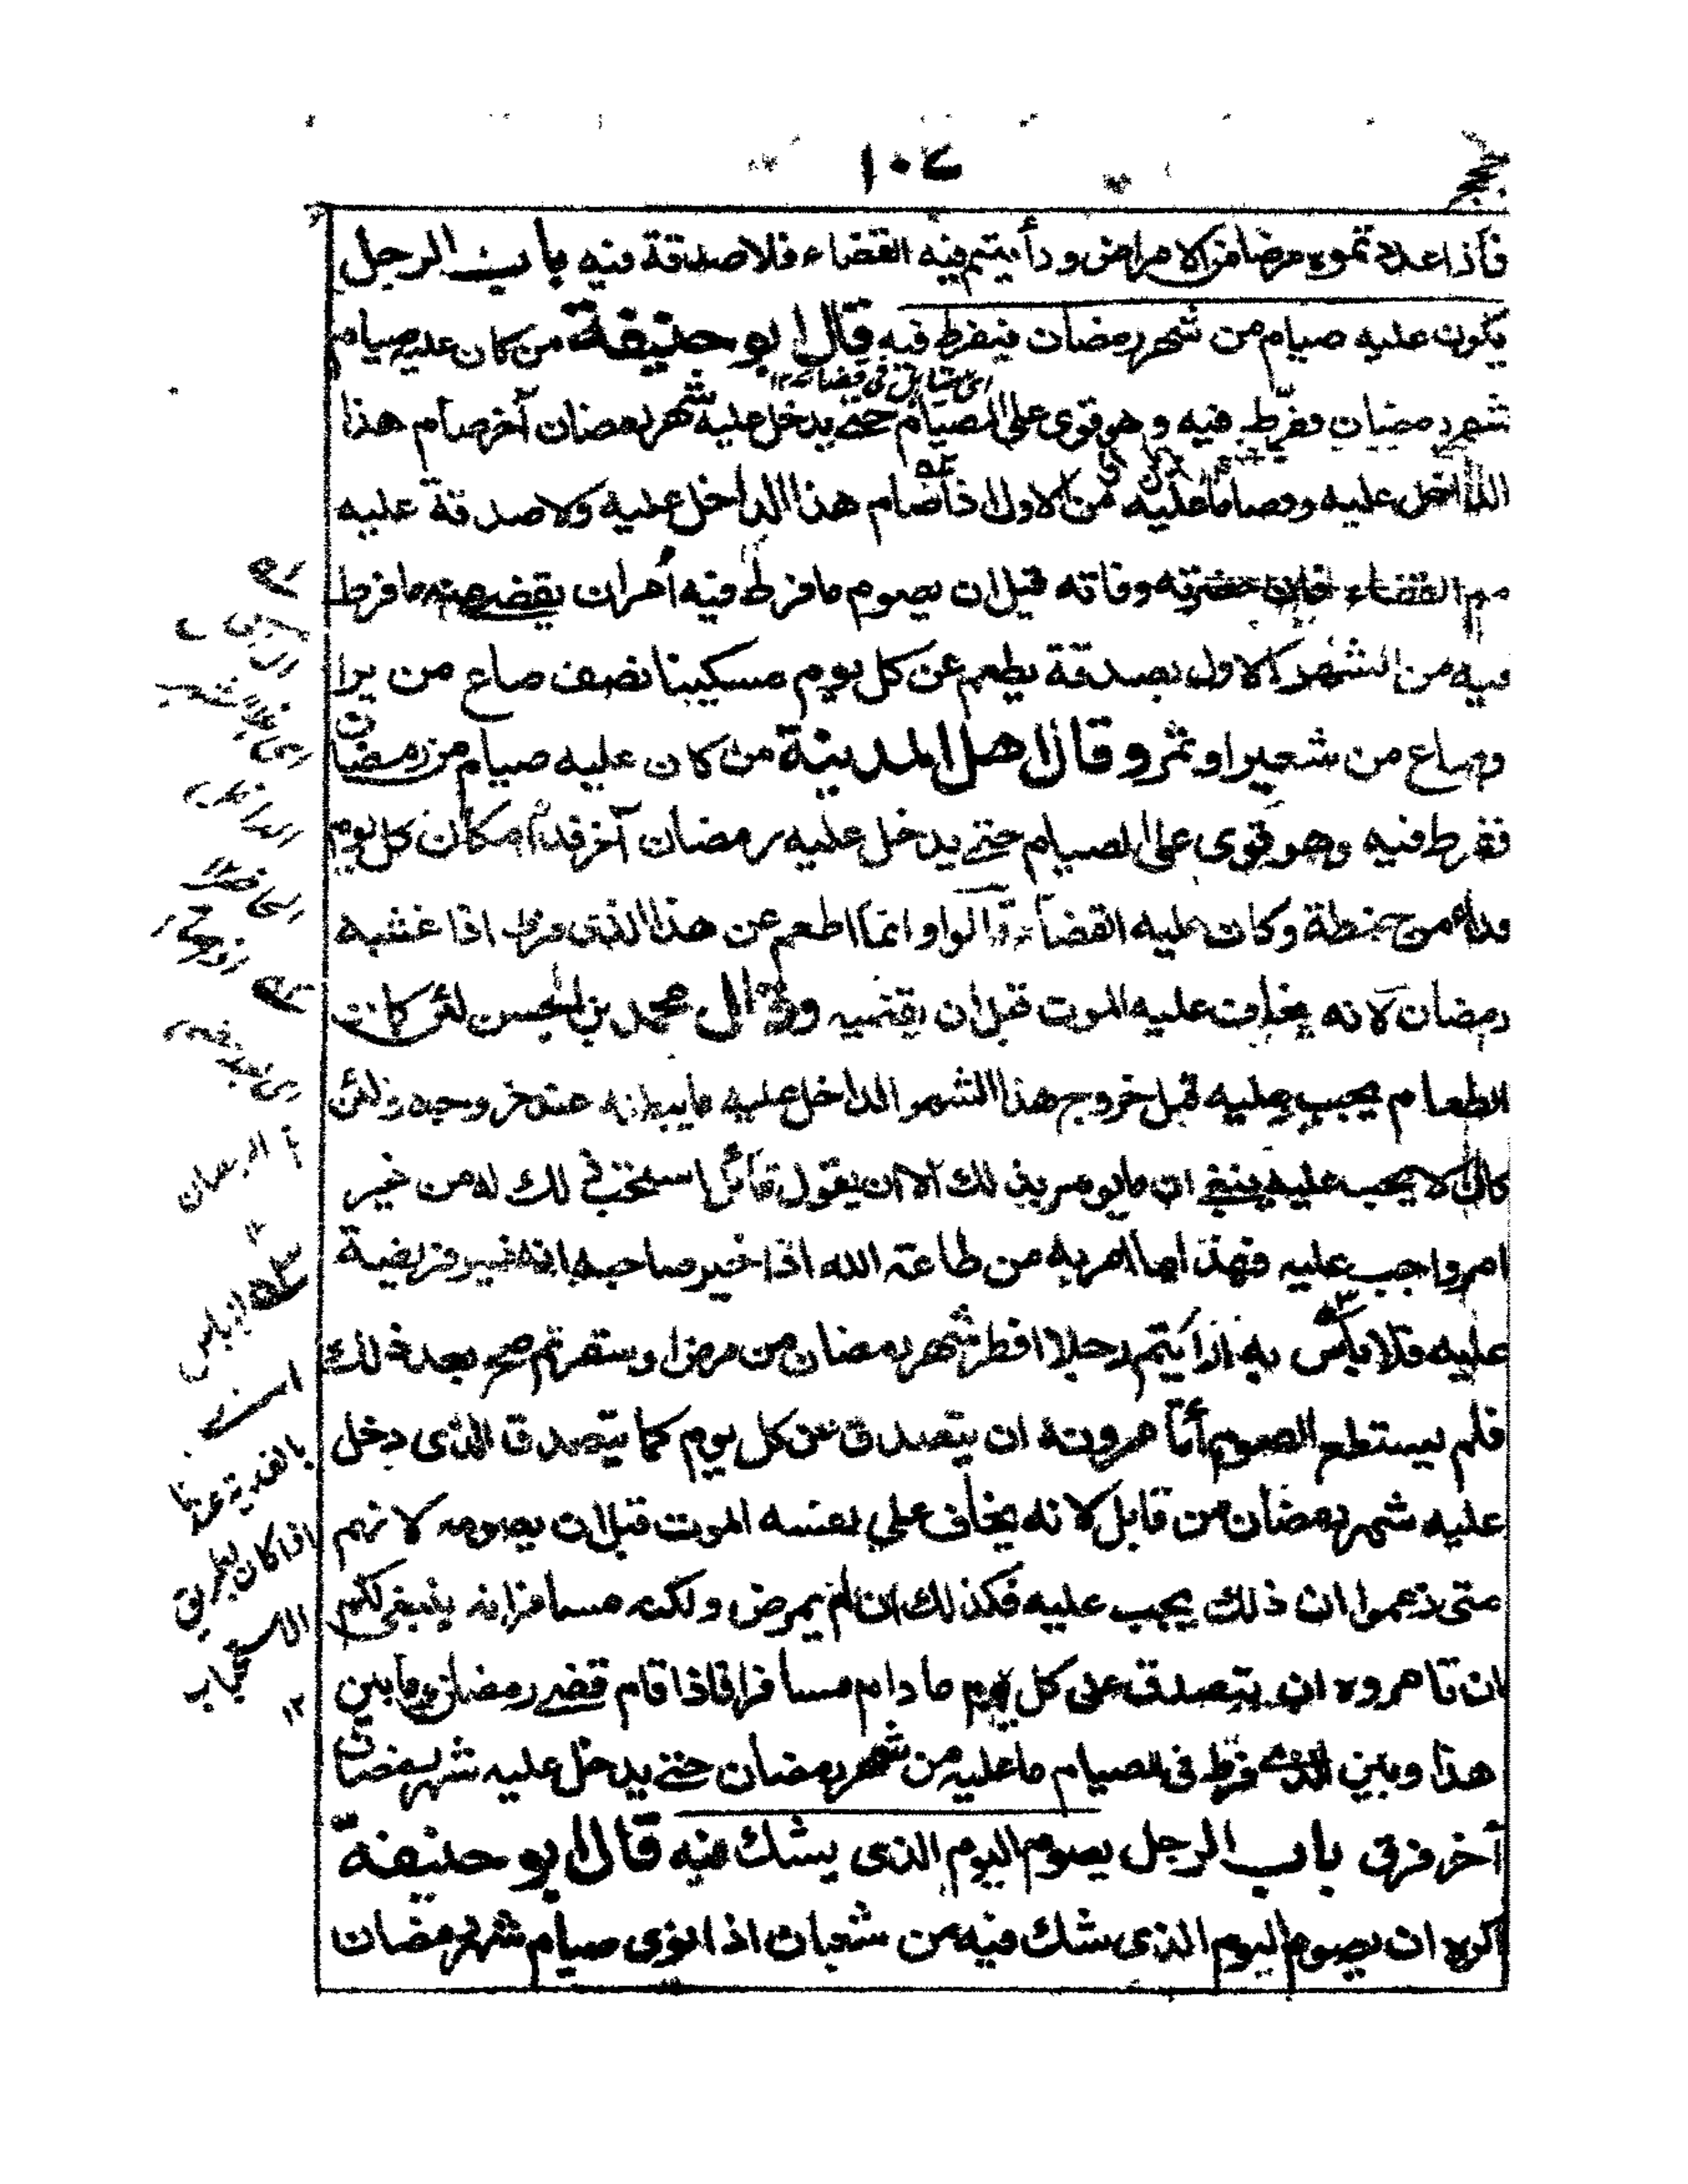 ١٠٤
فاذا عددتموه مرضا من الامراض ورأيتم فيه القضاء فلا صدقة فيه باب الرجل
يكون عليه صيام من شهر رمضان فيفرط فيه قال ابو حنيفة من كان عليه صيام
شهر رمضان ففرط فيه وهو قوى على الصيام حتى يدخل عليه شهر رمضان آخر صام هذا
الداخل عليه وصام ما عليه من الاول فاذا صام هذا الداخل عليه ولا صدقة عليه
مع القضاء فان حضرته وفاته قبل ان يصوم ما فرط فيه أمر ان يقضى عنه ما فرط
فيه من الشهر الاول بصدقة يطعم عن كل يوم مسكينا نصف صاع من برا
وصاع من شعير او تمر وقال اهل المدينة من كان عليه صيام من رمضان
ففرط فيه وهو قوى على الصيام حتى يدخل عليه رمضان آخر فدأ مكان كل يوم
مدا من حنطة وكان عليه القضاء قالوا وانما اطعم عن هذا الذى فرط اذا غشيه
رمضان لانه يخاف عليه الموت قبل ان يقضيه وقال محمد بن الحسن لئن كان
الطعام يجب عليه قبل خروج هذا الشهر الداخل عليه ما يبطله عنه خروجه ولئن
كان لا يجب عليه ينبغى ان ما يؤمر بذلك الا ان يقول قائل استحب ذلك له من غير
امر واجب عليه فهذا مما امر به من طاعة الله اذا خبر صاحبه انه غير فريضة
عليه فلا بأس به أرأيتم رجلا افطر شهر رمضان من مرض او سفر ثم صح بعد ذلك
فلم يستطع الصوم أتأمرونه ان يتصدق عن كل يوم كما يتصدق الذى دخل
عليه شهر رمضان من قابل لانه يخاف على نفسه الموت قبل ان يصومه لانهم
متى زعموا ان ذلك يجب عليه فكذلك ان لم يمرض ولكنه مسافر انه ينبغى لكم
ان تامروه ان يتصدق على كل يوم ما دام مسافرا فاذا قام قضى رمضان وما بين
هذا وبين الذى فرط فى الصيام ما عليه من شهر رمضان حتى يدخل عليه شهر رمضان
آخر فرق باب الرجل يصوم اليوم الذى يشك فيه قال ابو حنيفة
اكره ان يصوم اليوم الذى شك فيه من شعبان اذا نوى صيام شهر رمضان
بالفدية
اذا كان بطريق
الاستحباب
١٢